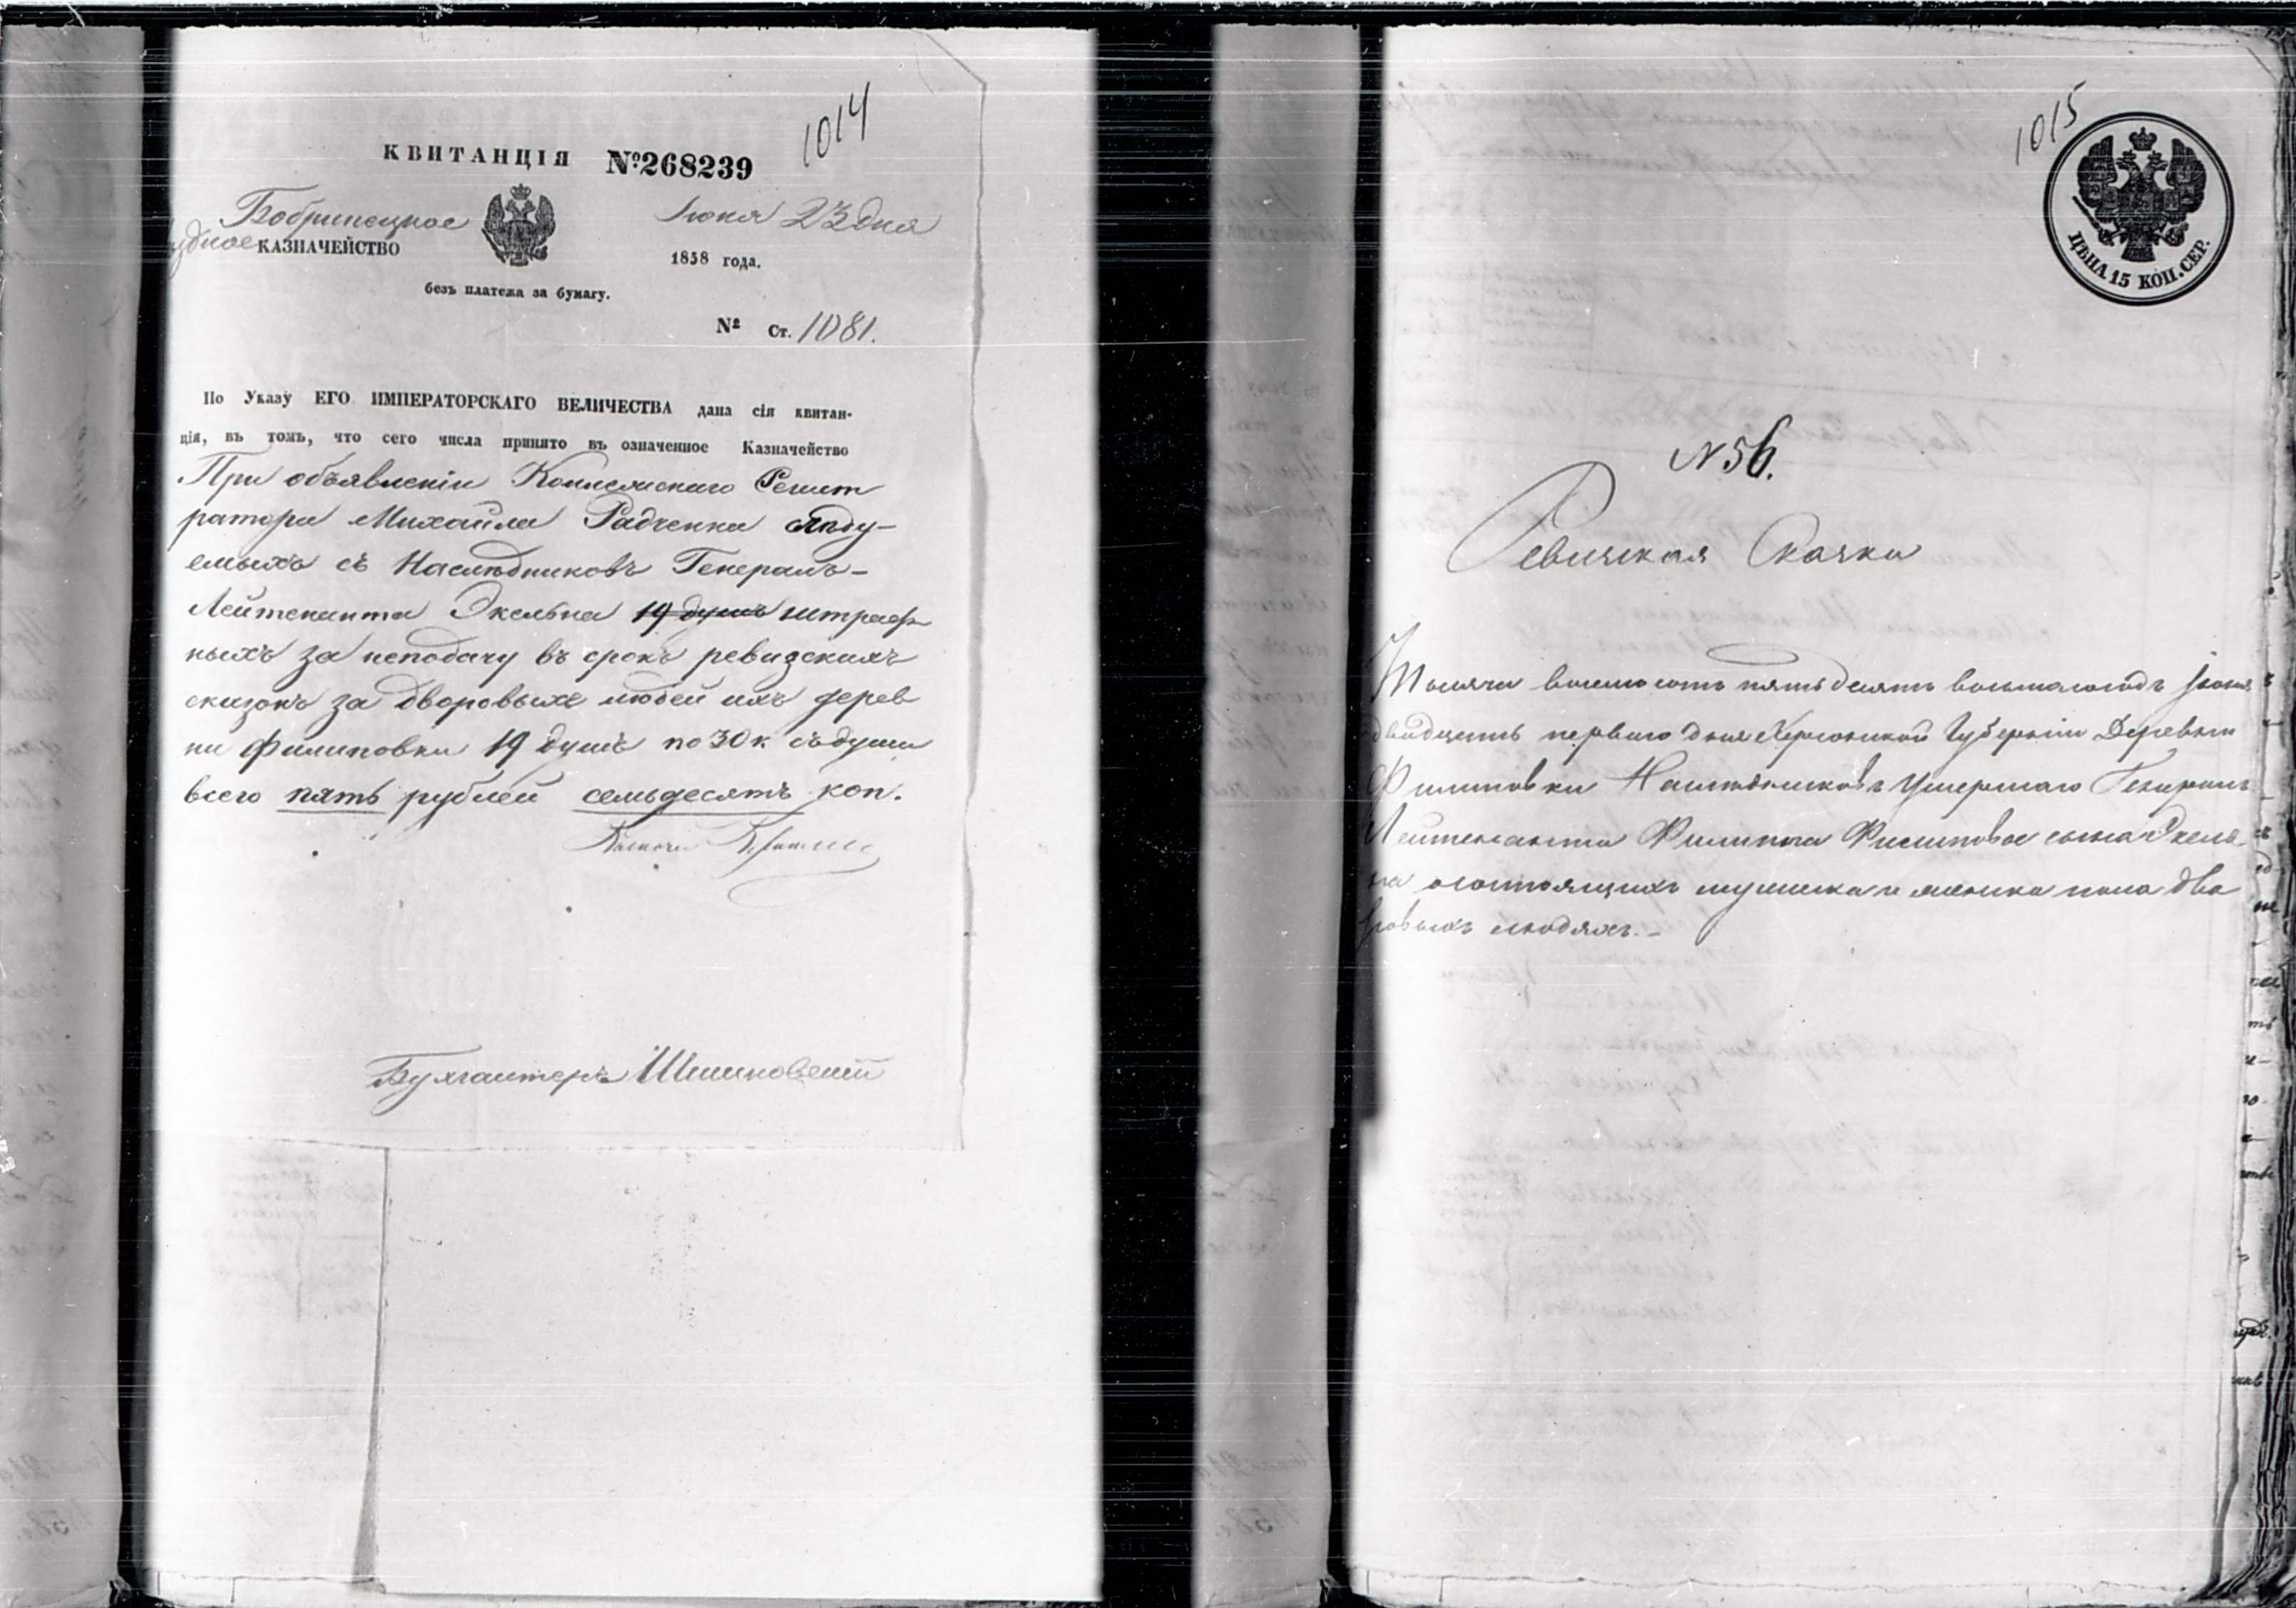 1014
КВИТАНЦІЯ №268239
Бобринецкое
уѣздное КАЗНАЧЕЙСТВО
Іюня 23 дня
1858 года.
безъ платежа за бумагу.
№ ст. 1081.
По Указу ЕГО ИМПЕРАТОРСКАГО ВЕЛИЧЕСТВА дана сія квитан-
ція, въ томъ, что сего числа принято въ означенное Казначейство
При объявленіи Коллежскаго Регист
ратора Михайла Радченка слѣду-
емыхъ съ Наслѣдниковъ Генералъ-
Лейтенанта Экельна 19 душъ штраф
ныхъ за неподачу въ срокъ ревизскихъ
сказокъ за дворовыхъ людей ихъ дерев
ни Филиповки 19 душъ по 30 к. съ души
всего пять рублей семьдесятъ коп.
Бухгалтеръ
1015
ЦѢНА 15 КОП. СЕР.
N 56.
Ревизская Сказка
Тысяча восемь сотъ пятьдесятъ восьмаго года Іюня
двадцать перваго дня Херсонской Губерніи Деревни
Филиповки Наслѣдниковъ умершаго Генералъ
Лейтенанта Филипа Филипова сына Экель
на о состоящихъ мужеска и женска пола дво
ровыхъ людяхъ.-